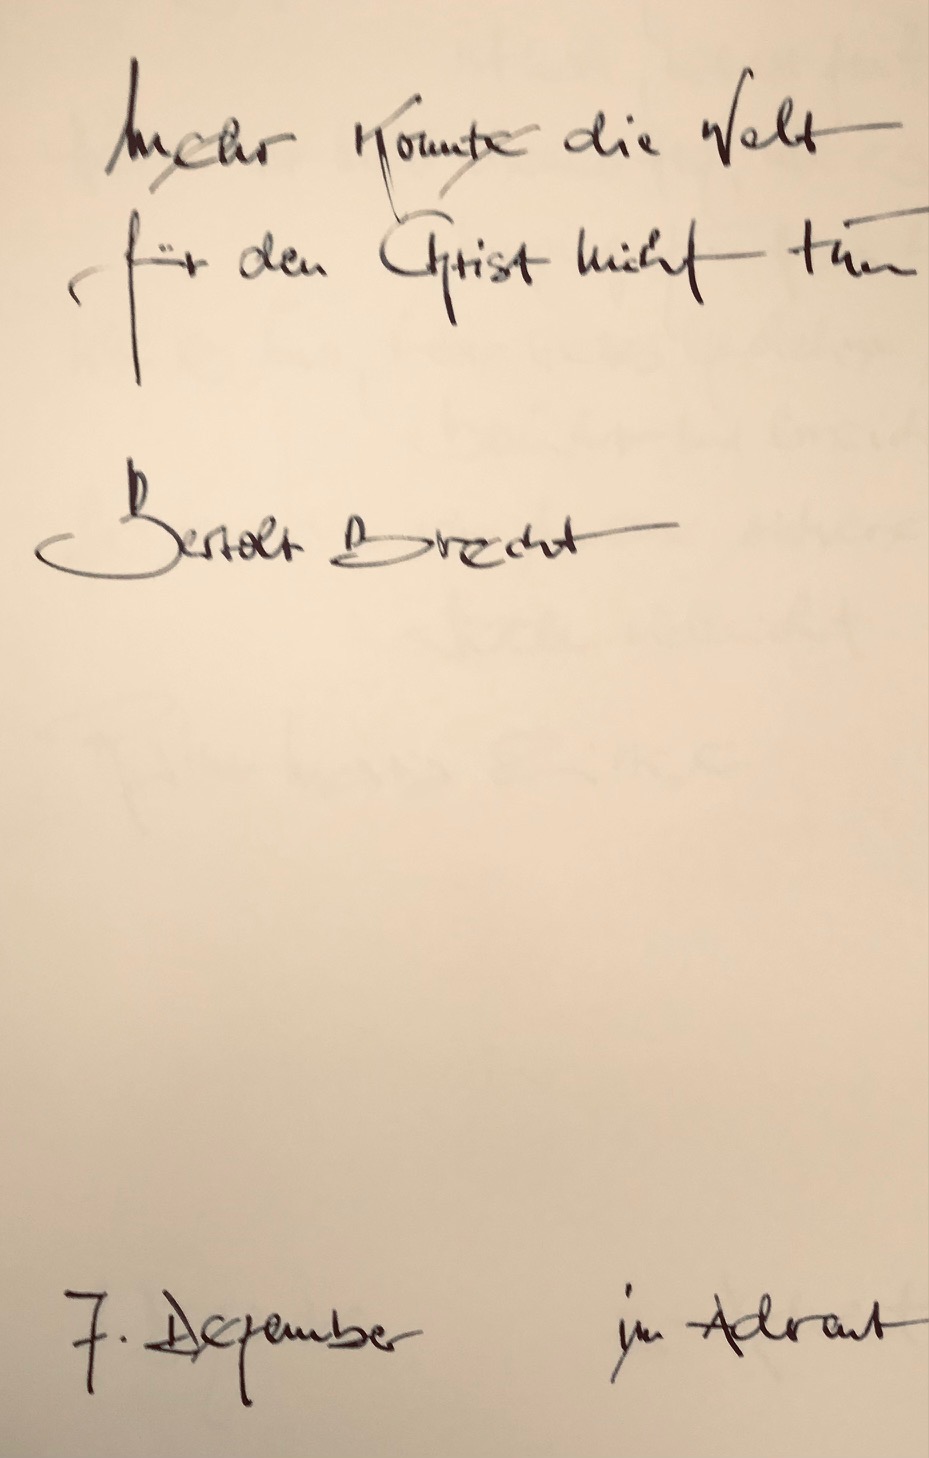 Mehr konnte die Welt
für den Christ nicht tun
Bertolt Brecht
7. Dezember im Advent